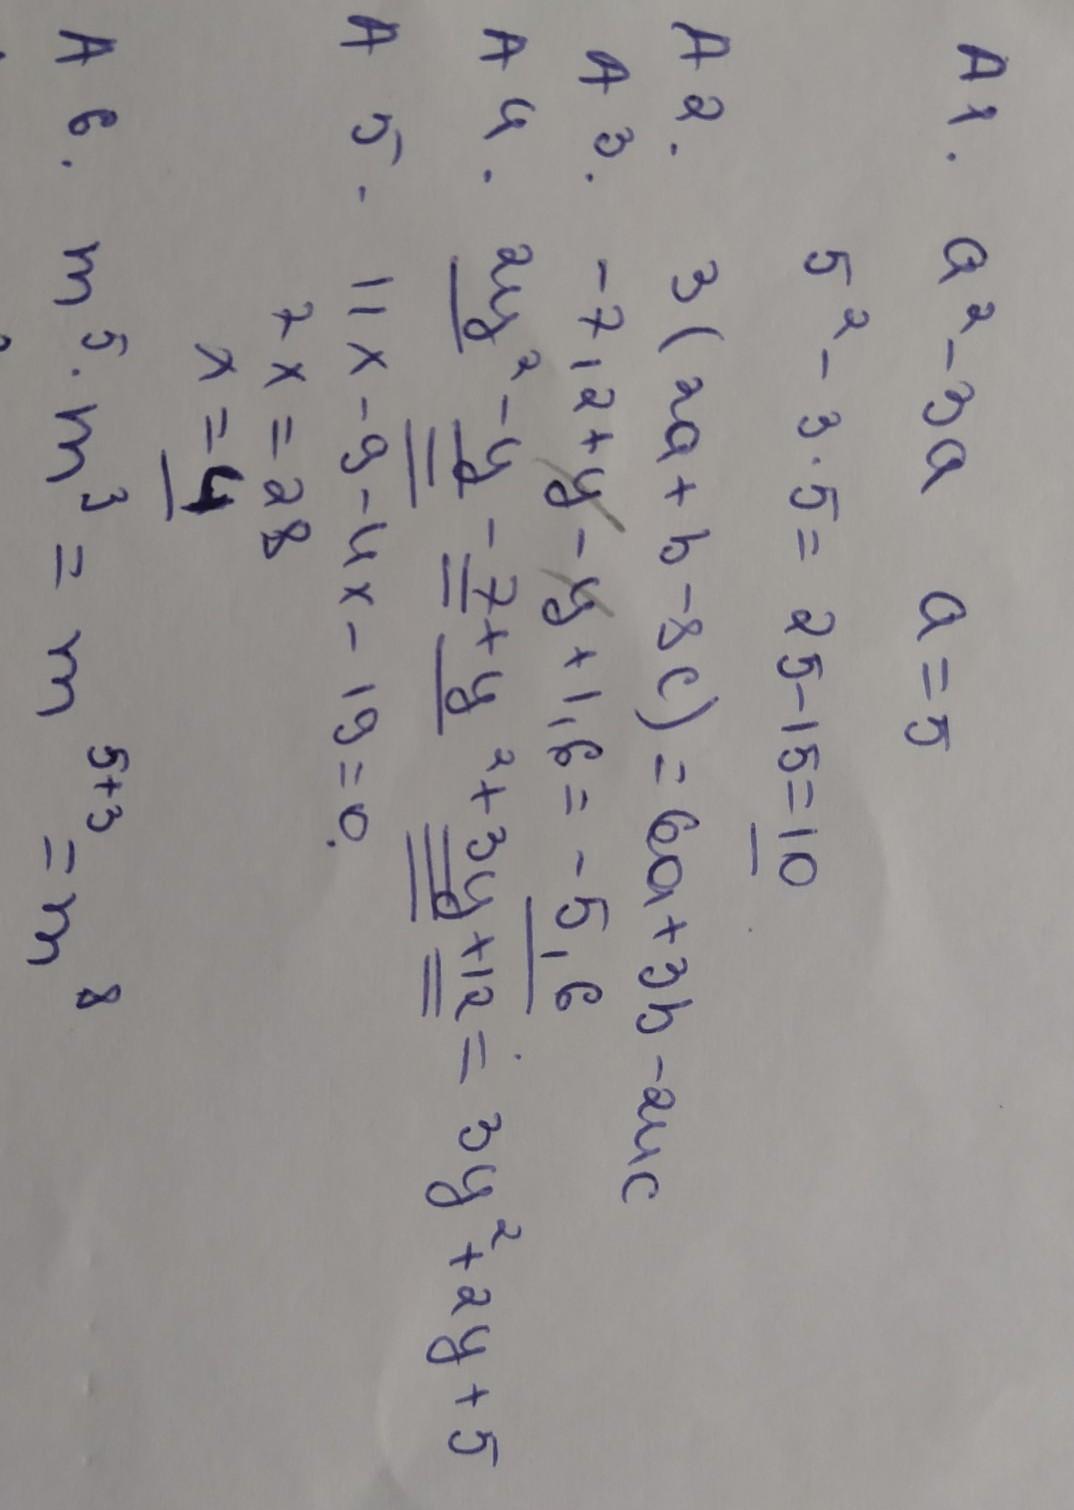 A1. a² - 3a   a = 5
5² - 3 · 5 = 25 - 15 = 10
A2. 3(2a + b - 8c) = 6a + 3b - 24c
A3. -7,2 + y - y + 1,6 = -5,6
A4. 2y² - y - 7 + y² + 3y + 12 = 3y² + 2y + 5
A5. 11x - 9 - 4x - 19 = 0.
7x = 28
x = 4
A6. m⁵ · m³ = m⁵⁺³ = m⁸